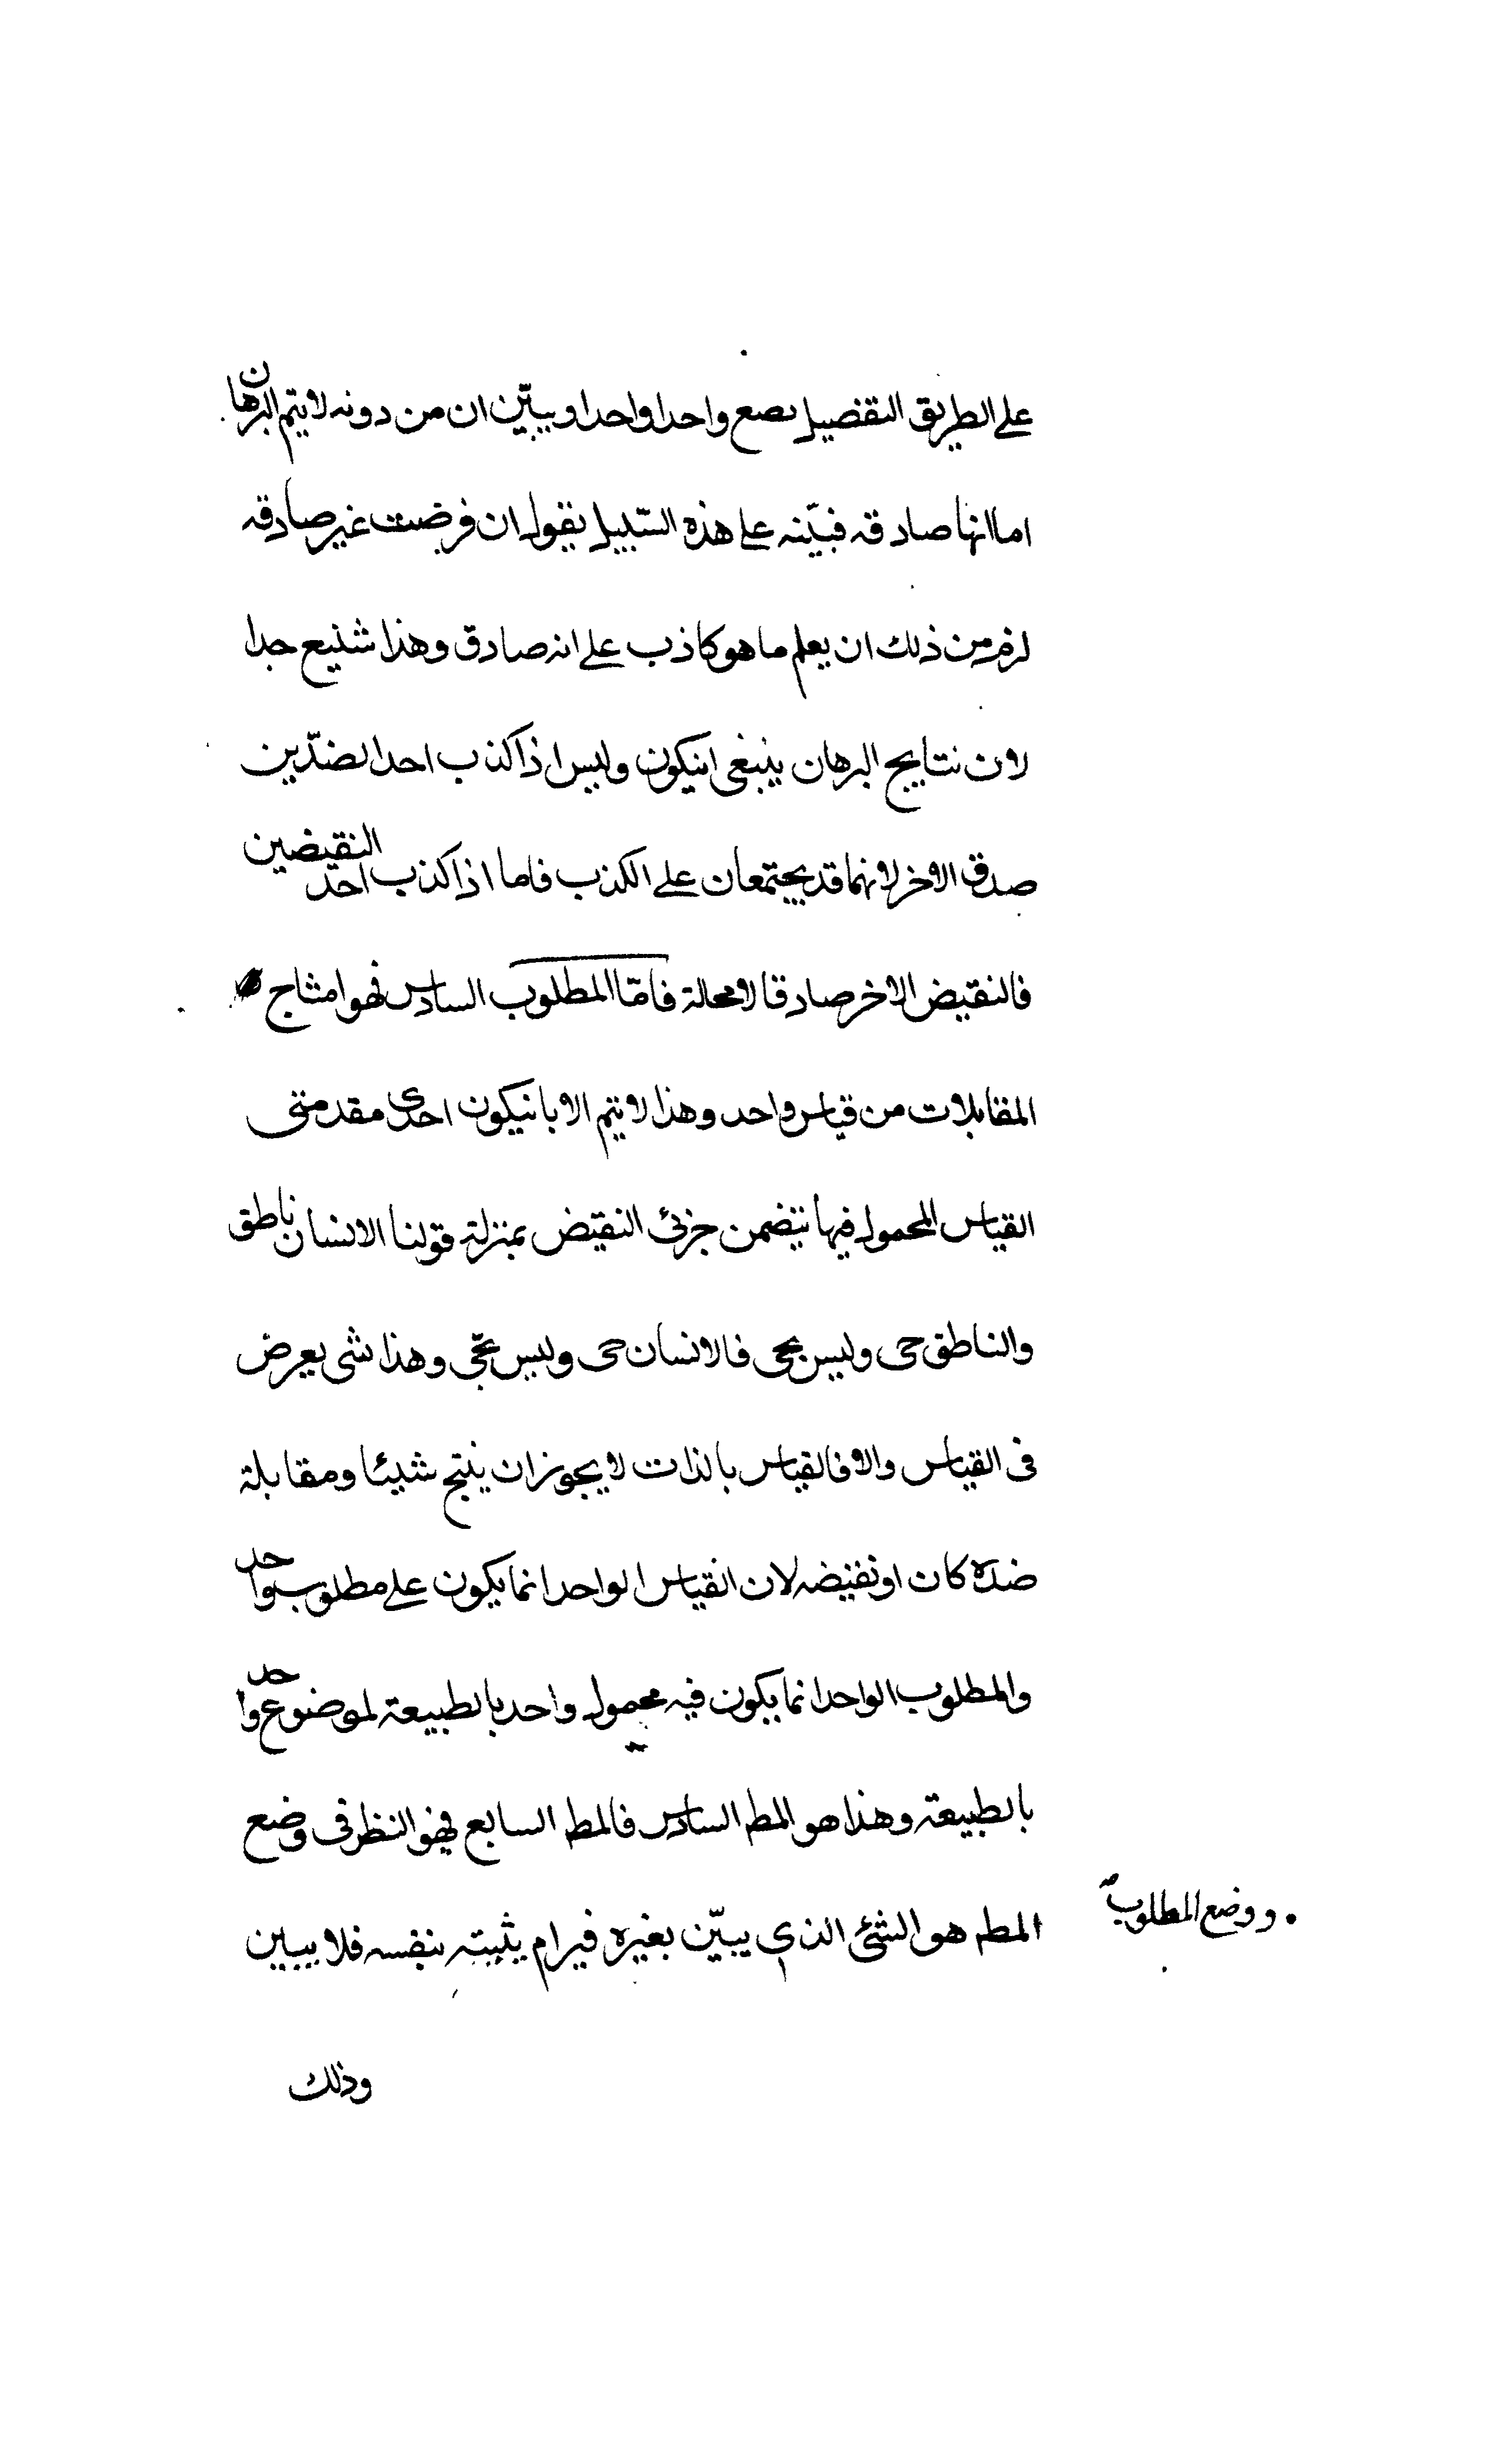 على الطريق التفضيل يصع واحدا واحدا ويبيّن ان من دونه لا يتم البرهان
اما انها صادقه فبيّنه على هذه السّبيل يقول ان فرضت غير صادقه
لزم من ذلك ان يعلم ما هو كاذب على انه صادق وهذا شنيع جدا
لان نتايج البرهان ينبغى انيكون وليس اذا كذب احد الضدّين
صدق الاخر لانهما قد يجتمعان على الكذب فاما اذا كذب احد النقيضين
فالنقيض الاخر صادقا لا محالة فامّا المطلوب السادس فهو امتاج
المقابلات من قياس واحد وهذا لا يتم الا بانيكون احدى مقدمتى
القياس المحمول فيها يتضمن جزئ النقيض بمنزلة قولنا الانسان ناطق
والناطق حى وليس بحى فالانسان حى وليس بحّى وهذا شى يعرض
فى القياس والا فالقياس بالذات لا يجوز ان ينتج شيئا ومقابلة
ضده كان او نقيضه لان القياس الواحد انما يكون على مطلوب واحد
والمطلوب الواحد انما يكون فيه محمول واحد بالطبيعة لموضوع واحد
بالطبيعة وهذا هو المط السادس فالمط السابع فهو النظر فى وضع
المط هو الشئ الذى يبيّن بغيره فيرام يثبته بنفسه فلا يبين
ووضع المطلوب
وذلك